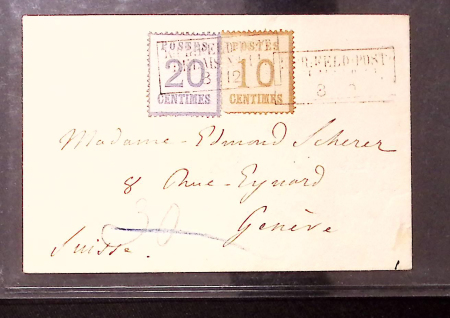 POSTES POSTES
20 10
CENTIMES CENTIMES
FELD-POST
Madame Edmond Scherer
8 Rue Eynard
Genève
Suisse.
30